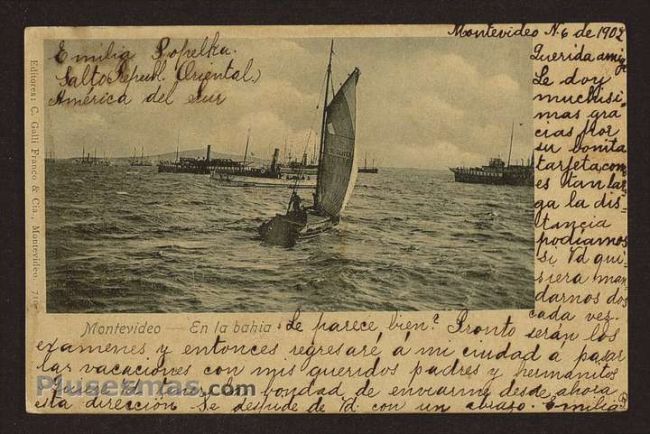 Montevideo N. 6 de 1902
Emilia Popelka.
Salto Republ. Oriental.)
América del Sur
Querida amiga
Le doy
muchisi
mas gra
cias por
su bonita
tarjeta, com
es tan lar
ga la dis-
tancia
podiamos
si Vd qui
siera man
darnos dos
cada vez.
Editores: C. Galli Franco & Cia., Montevideo.
Montevideo — En la bahia
Le parece bien? Pronto serán los
examenes y entonces regresaré á mi ciudad á pasar
las vacaciones con mis queridos padres y hermanitos
bondad de enviarme desde ahora
esta dirección. Se despide de Vd. con un abrazo. Emilia P.
Plusesmas.com